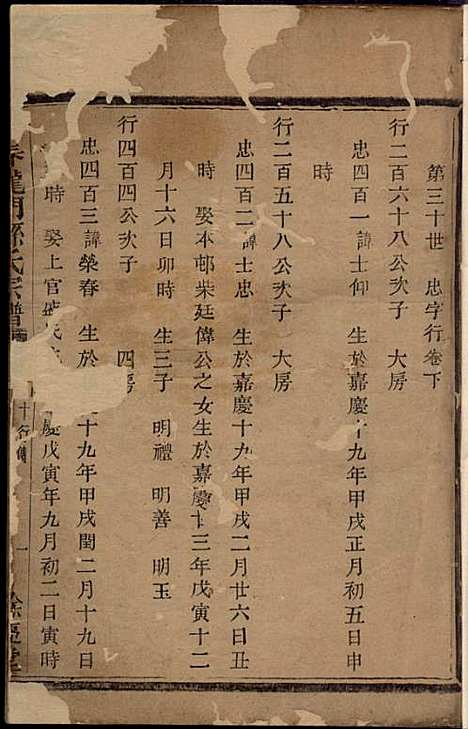 第三十世　忠字行卷下
行二百六十八公次子　大房
忠四百一諱士仰　生於嘉慶十九年甲戌正月初五日申
時
行二百五十八公次子　大房
忠四百二諱士忠　生於嘉慶十九年甲戌二月廿六日丑
時　娶本邨柴廷偉公之女生於嘉慶廿三年戊寅十二
月十六日卯時　生三子　明禮　明善　明玉
行四百四公次子　四房
忠四百三諱榮春　生於　十九年甲戌閏二月十九日
時　娶上官　氏　慶戊寅年九月初二日寅時
龍門孫氏宗譜
十行傳　一